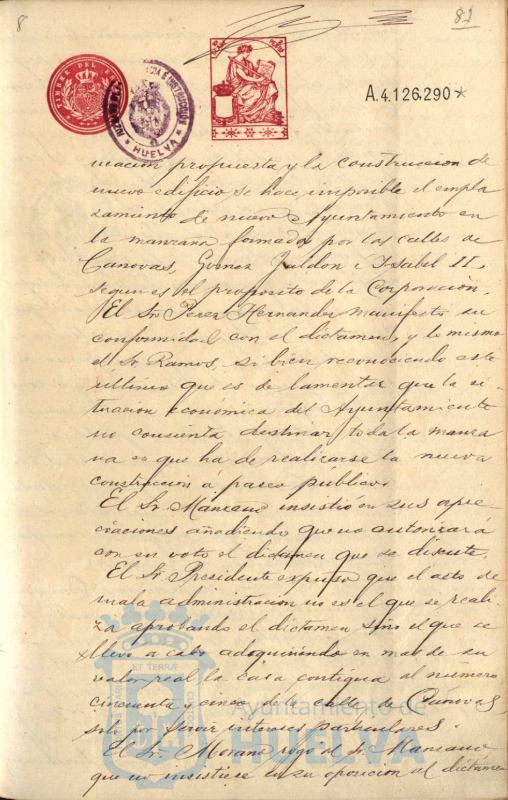 8
82
TIMBRE DEL
HUELVA
A.4.126.290*
nuacion propuesta y la construccion de
nuevo edificio se hace imposible el empla
zamiento de nuevo Ayuntamiento en
la manzana formada por las calles de
Canovas, Gomez Jaldon e Isabel II,
segun es el proposito de la Corporación.
El Sr Perez Hernandez manifesto su
conformidad con el dictamen, y lo mismo
el Sr Ramos, si bien reconociendo este
ultimo que es de lamentar que la si-
tuacion economica del Ayuntamiento
no consienta destinar toda la manza
na en que ha de realizarse la nueva
construccion a paseo público.
El Sr Manzano insistió en sus apre-
ciaciones añadiendo que no autorizará
con su voto el dictamen que se discute.
El Sr Presidente expuso que el acto de
mala administracion no es el que se reali-
za aprobando el dictamen sino el que se
llevó a cabo adoquinando en mas de su
valor real la casa contigua al número
cincuenta y cinco de la calle de Cánovas,
solo por servir intereses particulares.
El Sr Morano rogó al Sr Manzano
que no insistiese en su oposicion al dictamen
Ayuntamiento de
HUELVA